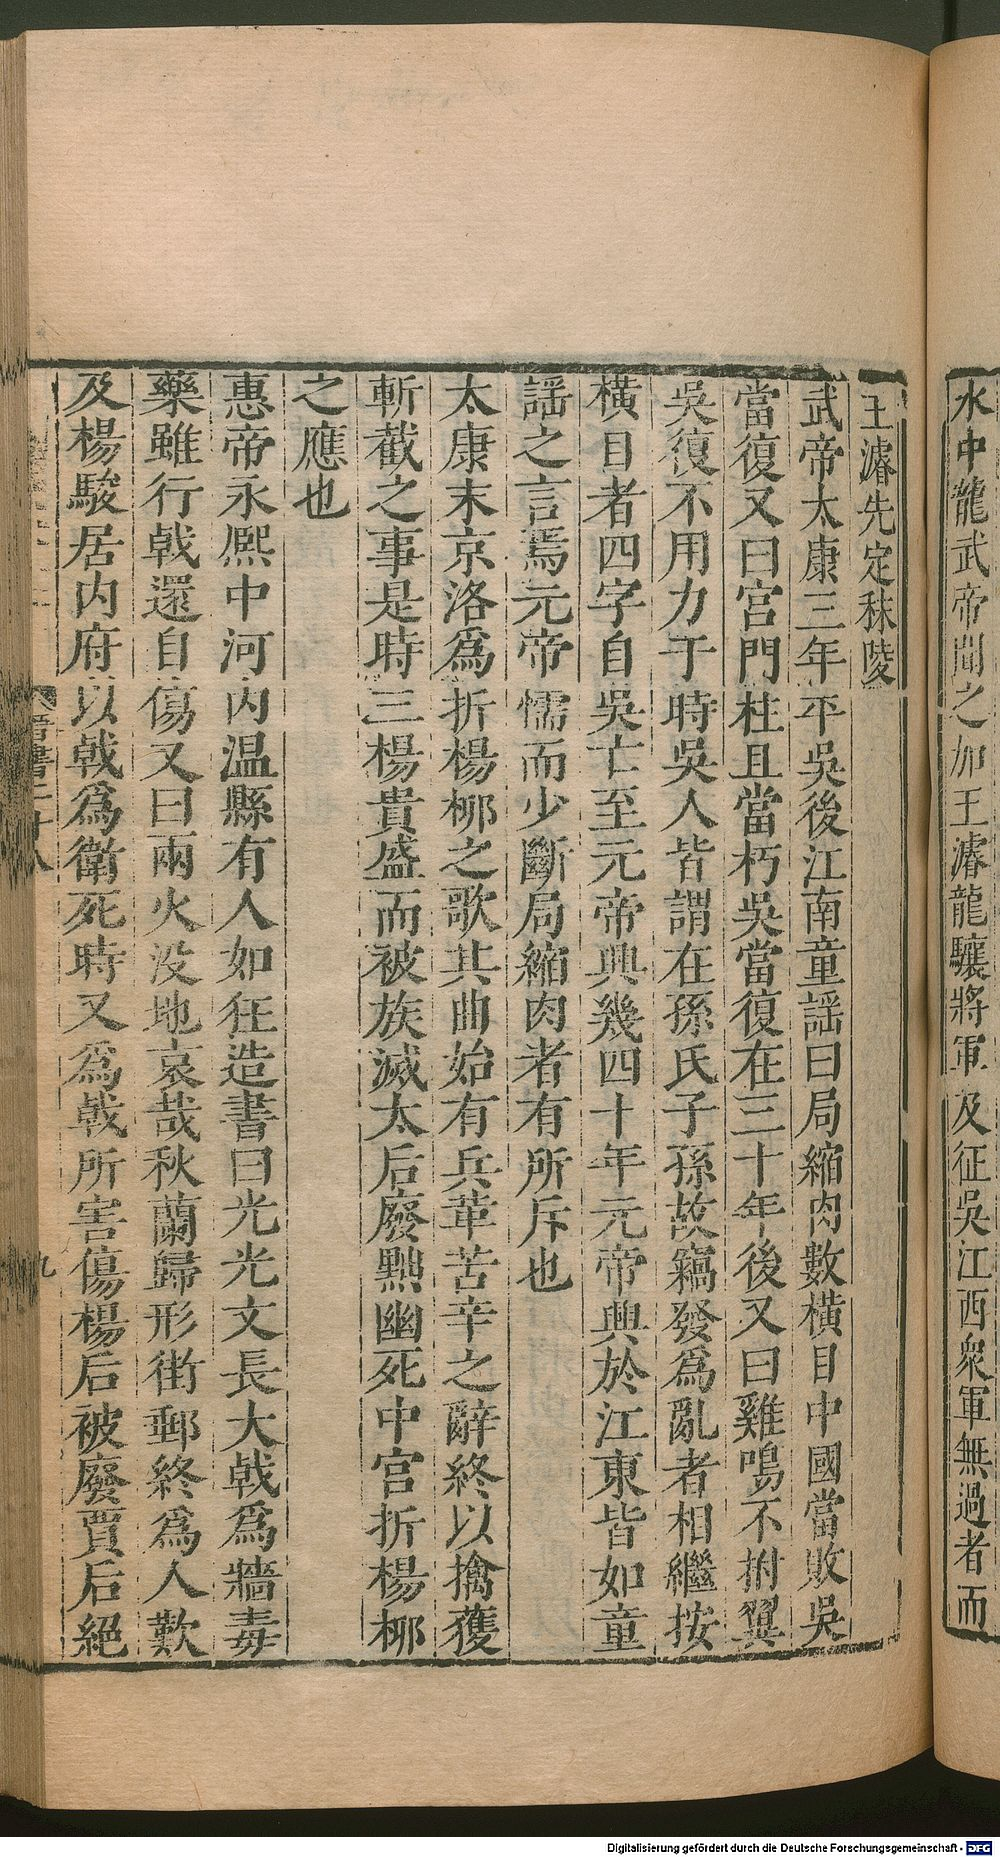 水中龍武帝聞之加王濬龍驤將軍及征吳江西衆軍無過者而
王濬先定秣陵
武帝太康三年平吳後江南童謡曰局縮肉數橫目中國當敗吳
當復又曰宮門柱且當朽吳當復在三十年後又曰雞鳴不拊翼
吳復不用力于時吳人皆謂在孫氏子孫故竊發爲亂者相繼按
橫目者四字自吳亡至元帝興幾四十年元帝興於江東皆如童
謡之言焉元帝懦而少斷局縮肉者有所斥也
太康末京洛爲折楊桺之歌其曲始有兵革苦辛之辭終以擒獲
斬截之事是時三楊貴盛而被族滅太后廢黜幽死中宮折楊桺
之應也
惠帝永熈中河内温縣有人如狂造書曰光光文長大戟爲牆毒
藥雖行戟還自傷又曰兩火没地哀哉秋蘭歸形街郵終爲人歎
及楊駿居内府以戟爲衛死時又爲戟所害傷楊后被廢賈后絕
晉書二十八
九
Digitalisierung gefördert durch die Deutsche Forschungsgemeinschaft - DFG